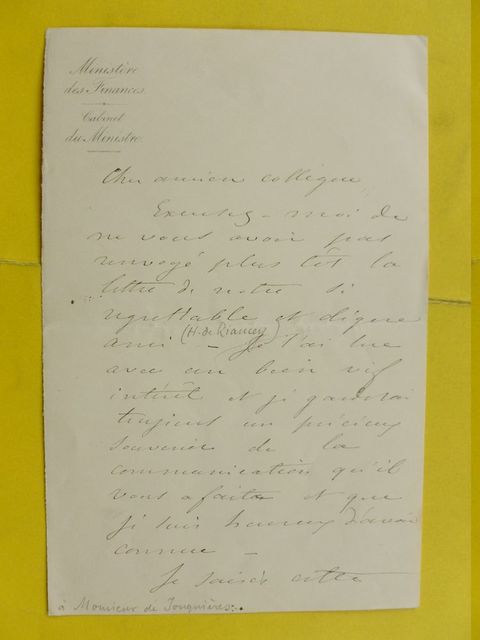 Ministère
des Finances.
Cabinet
du Ministre.
Cher ancien collègue
Excusez-moi de
ne vous avoir pas
renvoyé plus tôt la
lettre de notre si
regrettable et digne
ami - Je l'ai lue
(H. de Riancey)
avec un bien vif
intérêt et je garderai
toujours un précieux
souvenir de la
communication qu'il
vous a faite et que
je suis heureux d'avoir
connue -
Je saisis cette
à Monsieur de Jonquières.